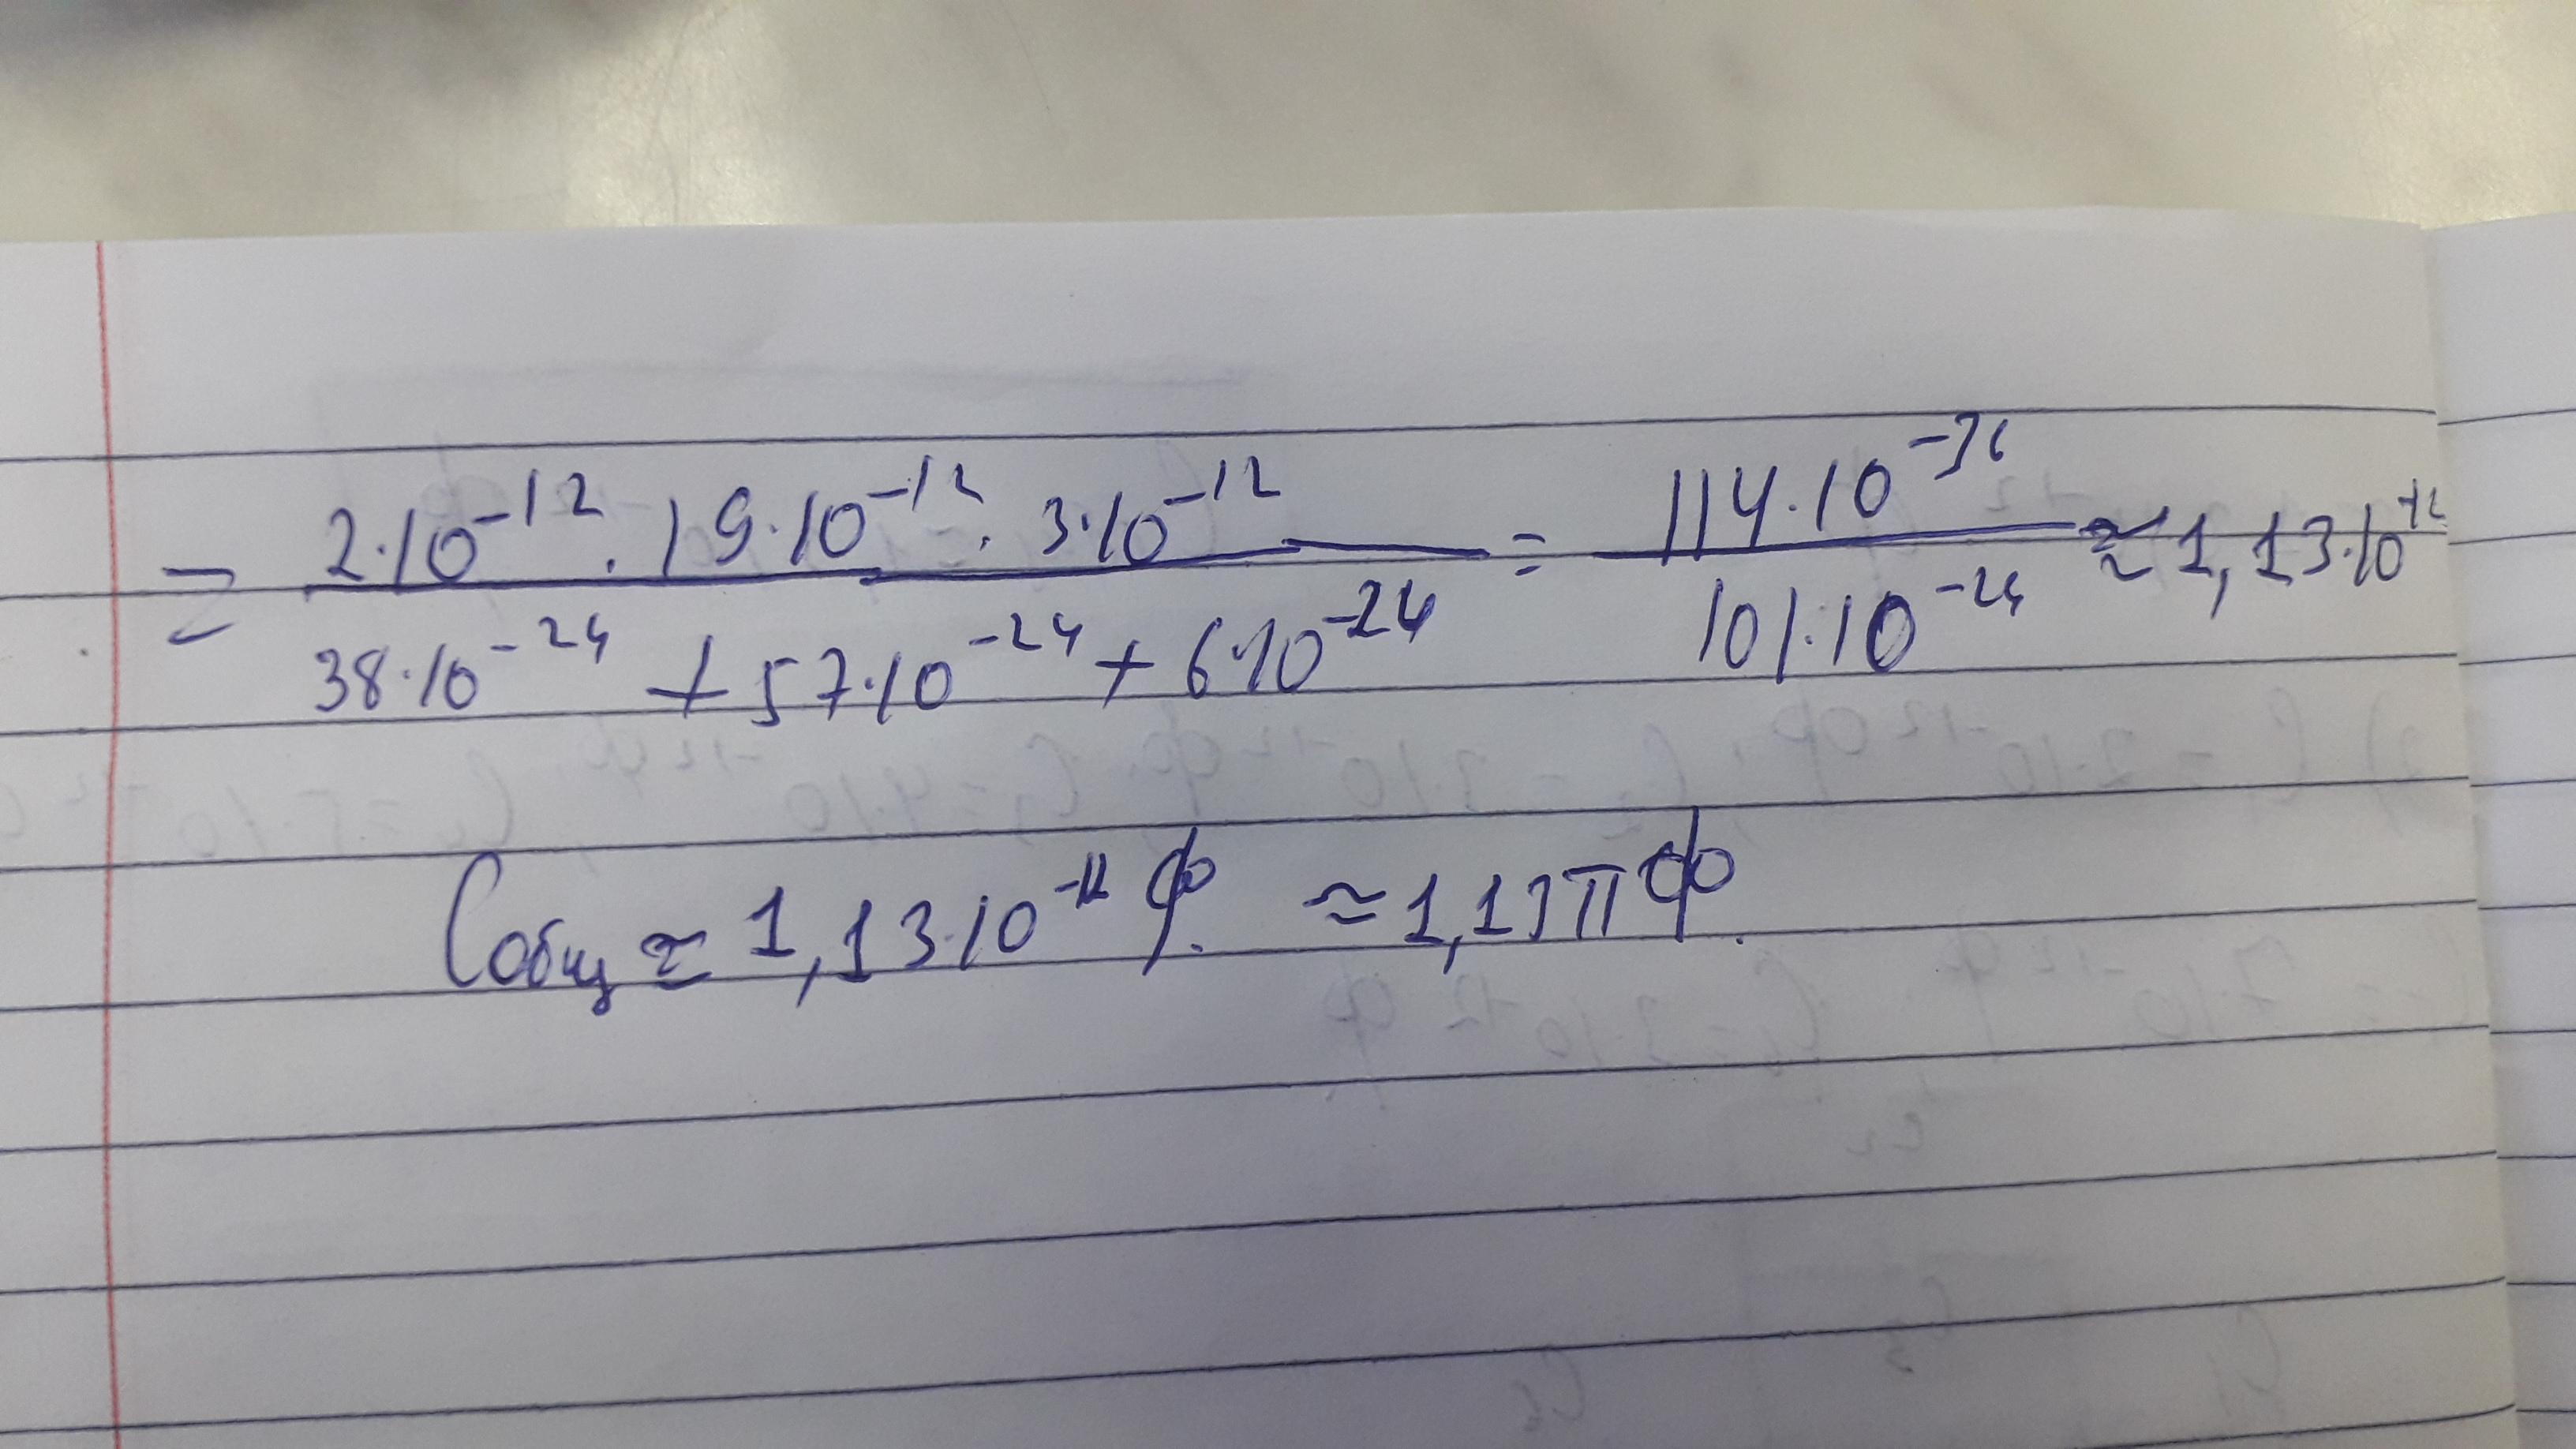 = (2·10^-12 · 19·10^-12 · 3·10^-12) / (38·10^-24 + 57·10^-24 + 6·10^-24) = (114·10^-36) / (101·10^-24) ≈ 1,13·10^-12
Cобщ ≈ 1,13·10^-12 ф. ≈ 1,13 пФ.